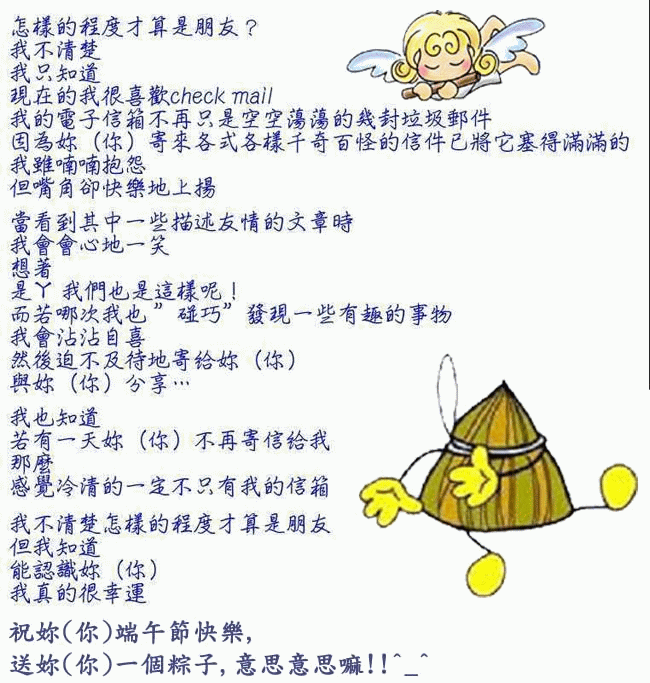 怎樣的程度才算是朋友？
我不清楚
我只知道
現在的我很喜歡check mail
我的電子信箱不再只是空空蕩蕩的幾封垃圾郵件
因為妳（你）寄來各式各樣千奇百怪的信件已將它塞得滿滿的
我雖喃喃抱怨
但嘴角卻快樂地上揚
當看到其中一些描述友情的文章時
我會會心地一笑
想著
是ㄚ 我們也是這樣呢！
而若哪次我也 ” 碰巧” 發現一些有趣的事物
我會沾沾自喜
然後迫不及待地寄給妳（你）
與妳（你）分享…
我也知道
若有一天妳（你）不再寄信給我
那麼
感覺冷清的一定不只有我的信箱
我不清楚怎樣的程度才算是朋友
但我知道
能認識妳（你）
我真的很幸運
祝妳(你)端午節快樂,
送妳(你)一個粽子,意思意思嘛!!^_^